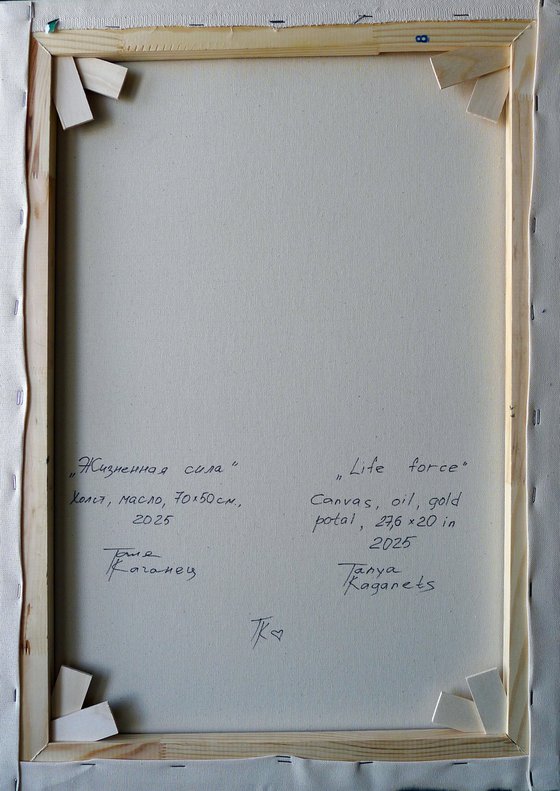 8
„Жизненная сила“
Холст, масло, 70×50см.,
2025
Таня
Каганец
„Life force“
Canvas, oil, gold
potal, 27,6×20 in
2025
Tanya
Kaganets
TK♡